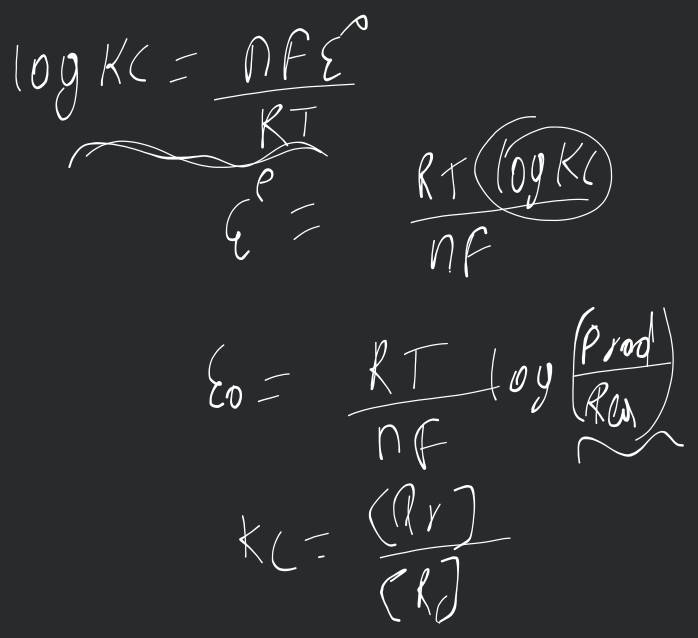 log Kc = nFε° / RT
ε° = RT log Kc / nF
ε0 = RT / nF log (Prod / Rea)
Kc = [Pr] / [R]